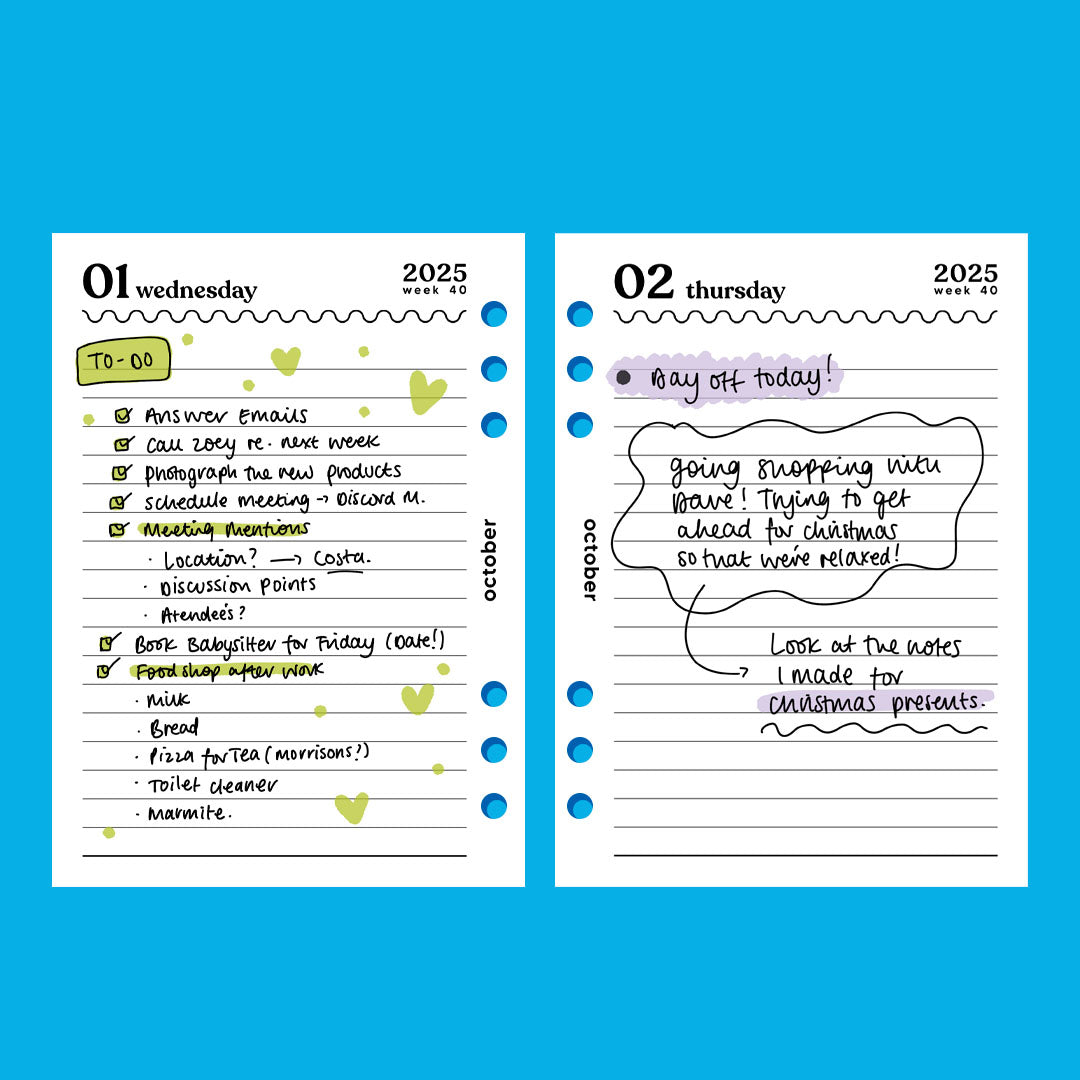 01 wednesday
2025
week 40
TO-DO
Answer Emails
Call Zoey re. next week
Photograph the new products
Schedule meeting → Discord M.
Meeting Mentions
· Location? → Costa.
· Discussion Points
· Atendee's?
Book Babysitter for Friday (Date!)
Food shop after work
· Milk
· Bread
· Pizza for Tea (Morrisons?)
· Toilet cleaner
· Marmite.
october
02 thursday
2025
week 40
october
Day off today!
going shopping with
Dave! Trying to get
ahead for christmas
so that we're relaxed!
Look at the notes
I made for
christmas presents.